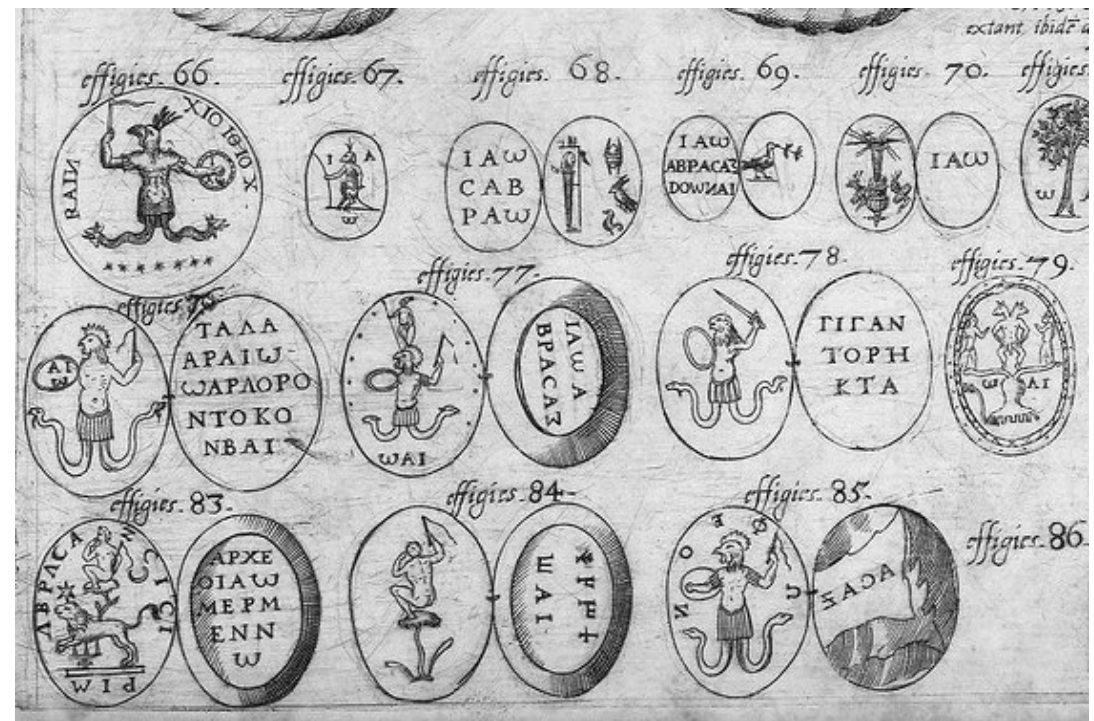 extant ibidē
effigies. 66.
effigies. 67.
effigies. 68.
effigies. 69.
effigies. 70.
effigies.
ΧΙΟ ΙΘΙΟ Χ
RAIN
I A
ω
ΙΑω
CAB
ΡΑω
ΙΑω
ΑΒΡΑCΑΣ
DOωNAI
ΙΑω
ω
effigies. 77.
effigies. 78.
effigies. 79.
ΑΙ
ω
ΤΑΛΑ
ΑΡΑΙω
ωΑΡΛΟΡΟ
ΝΤΟΚΟ
ΝΒΑΙ
ωΑΙ
ΙΑωΑ
ΒΡΑCΑΣ
ΓΙΓΑΝ
ΤΟΡΗ
ΚΤΑ
ω ΑΙ
effigies. 83.
effigies. 84.
effigies. 85.
effigies. 86
ΑΒΡΛCΑ
ΑΡΧΕ
ΟΙΑω
ΜΕΡΜ
ΕΝΝ
ω
ΑCΑΣ